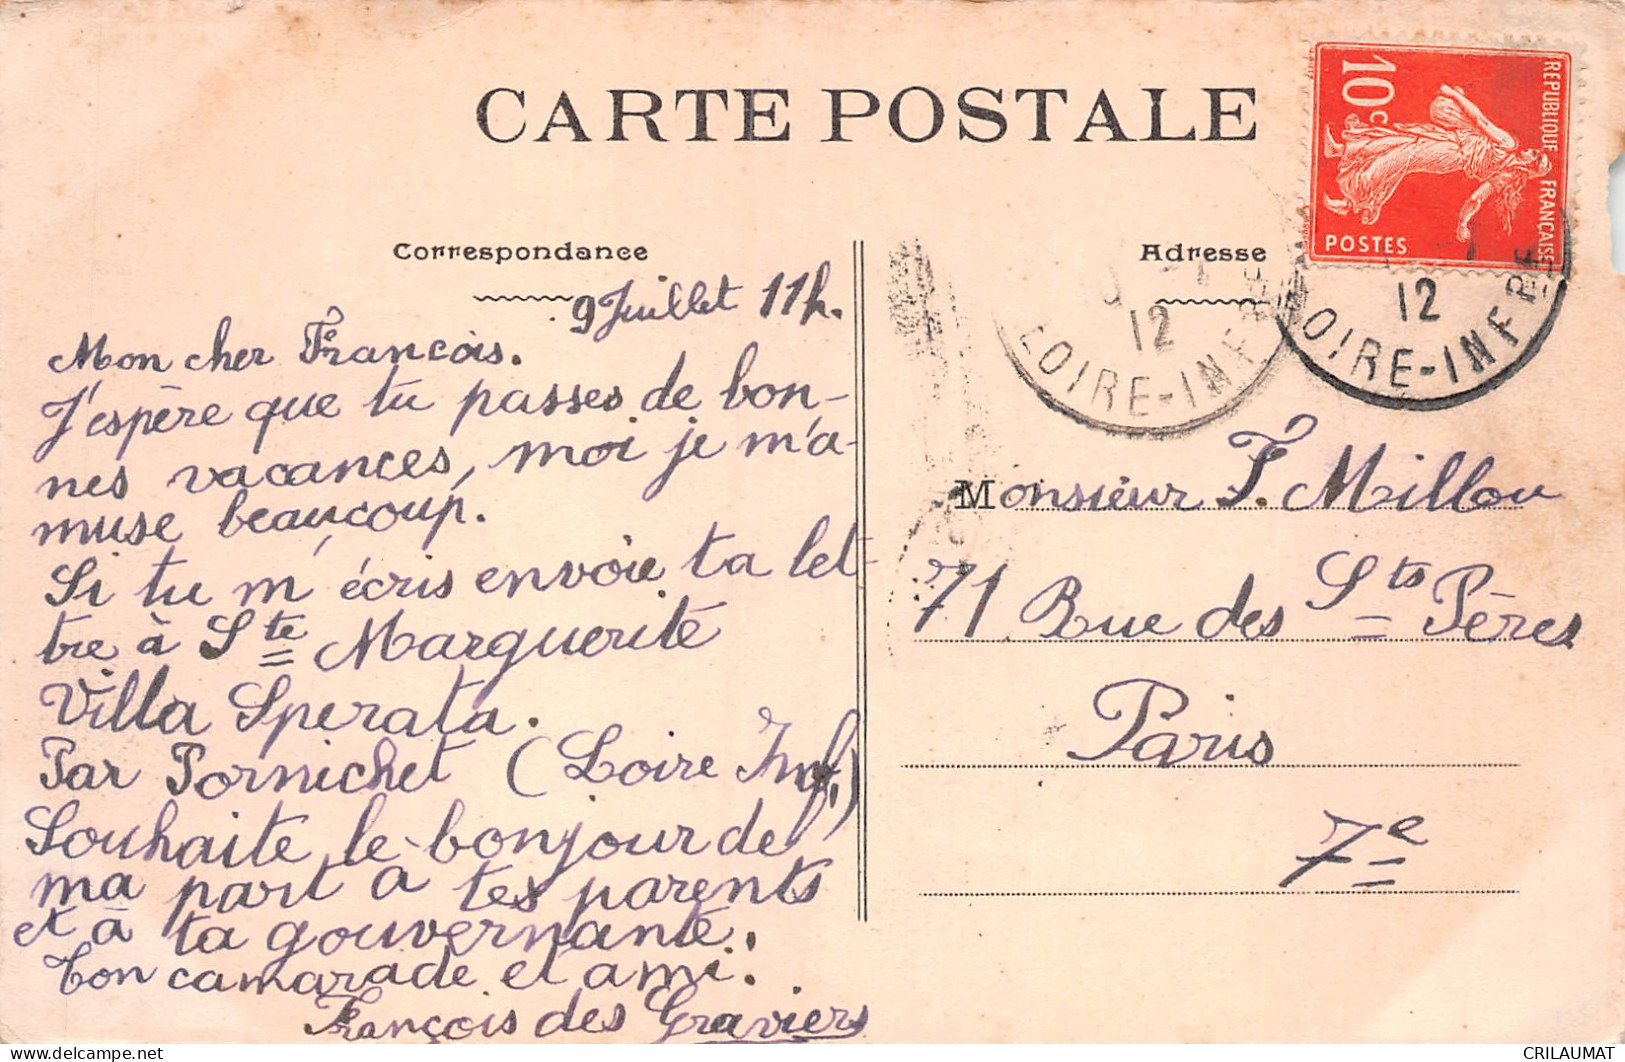 CARTE POSTALE
REPUBLIQUE FRANÇAISE
10c
POSTES
Correspondance
Adresse
12
LOIRE-INFRE
12
LOIRE-INFRE
9 Juillet 11h.
Mon cher Francois.
J'espère que tu passes de bon-
nes vacances, moi je m'a-
muse beaucoup.
Si tu m'écris envoie ta let-
tre à Ste Marguerite
Villa Sperata.
Par Pornichet (Loire Inf.)
Souhaite le bonjour de
ma part a tes parents
et à ta gouvernante.
Ton camarade et ami.
François des Graviers
Monsieur F. Millou
71 Rue des Sts Pères
Paris
7e
delcampe.net
CRILAUMAT